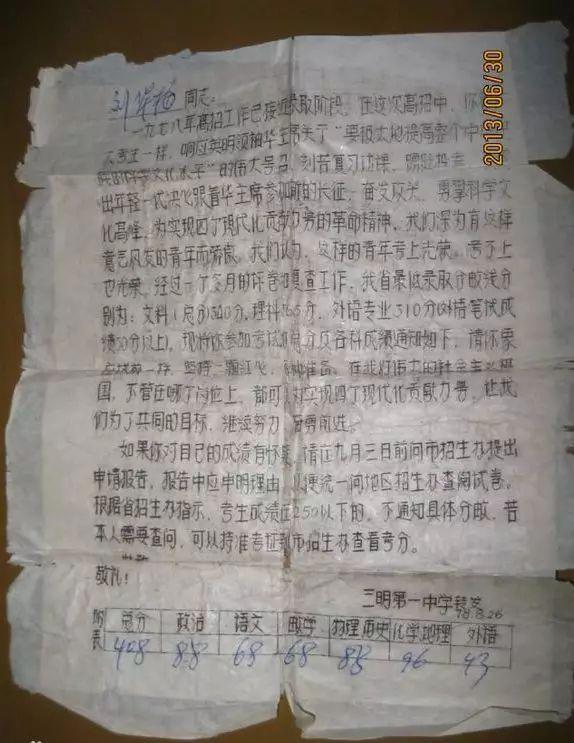 2013/06/30
同志:
一九七八年高招工作已接近录取阶段,在这次高招中,你
考生一样,响应英明领袖华主席关于“要极大地提高整个中
科学文化水平”的伟大号召,刻苦复习功课,踊跃投考
出年轻一代决心跟着华主席参加新的长征,奋发攻关,勇攀科学文
化高峰,为实现四个现代化贡献力量的革命精神,我们深为有这样
意气风发的青年而骄傲。我们认为,这样的青年考上光荣,考不上
也光荣。经过一个多月的评卷和复查工作,我省最低录取分数线分
别为:文科(总分)340分,理科365分,外语专业310分(外语笔试成
绩50分以上)。现将你参加考试的总分及各科成绩通知如下,请你象
一样,坚持一颗红心,准备。在我们伟大的社会主义祖
国,不管在哪个岗位上,都可以对实现四个现代化贡献力量,让我
们为了共同的目标,继续努力,奋勇前进。
如果你对自己的成绩有怀疑,请在九月三日前向市招生办提出
申请报告,报告中应申明理由,以便统一向地区招生办查阅试卷。
根据省招生办指示,考生成绩在250以下的,不通知具体分数,若
本人需要查问,可以持准考证到市招生办查看考分。
敬礼!
三明第一中学转发
78.8.26
附表 总分 政治 语文 数学 物理历史 化学地理 外语
408 88 68 68 88 96 43